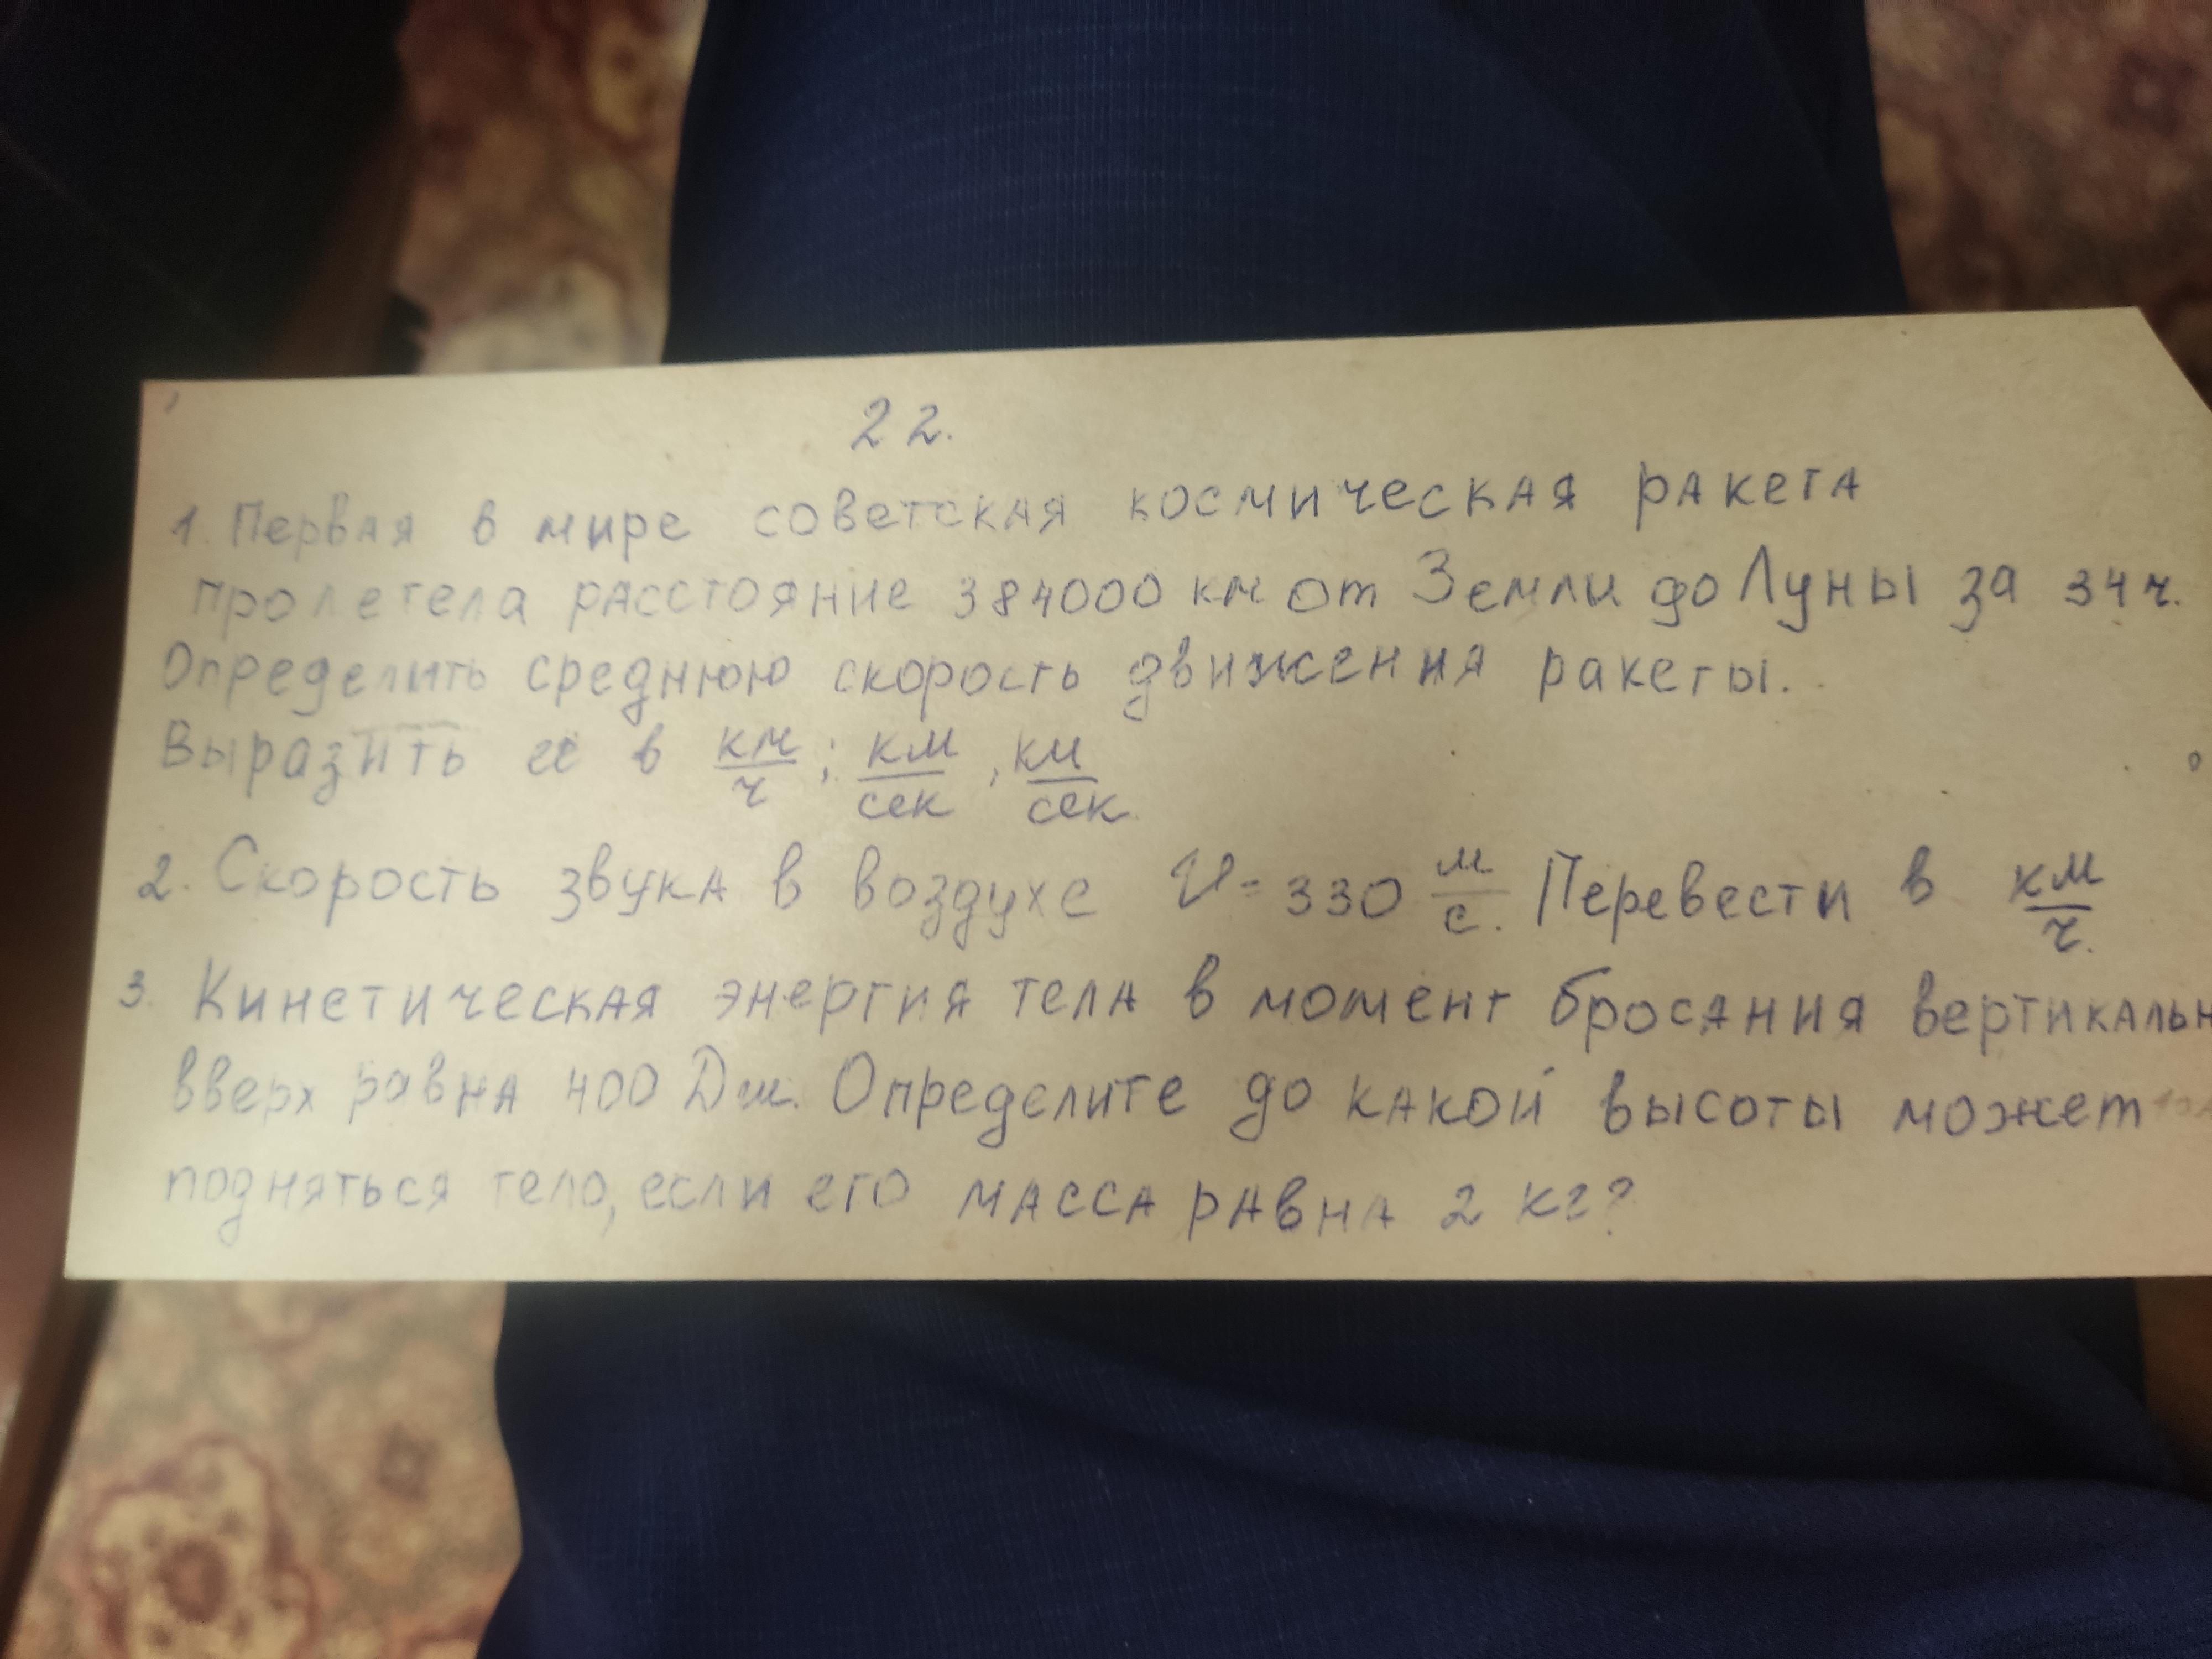 22.
1. Первая в мире советская космическая ракета
пролетела расстояние 384000 км от Земли до Луны за 34 ч.
Определить среднюю скорость движения ракеты.
Выразить её в км/ч; км/сек, км/сек
2. Скорость звука в воздухе V = 330 м/с. Перевести в км/ч.
3. Кинетическая энергия тела в момент бросания вертикальн
вверх равна 400 Дж. Определите до какой высоты может
подняться тело, если его масса равна 2 кг?